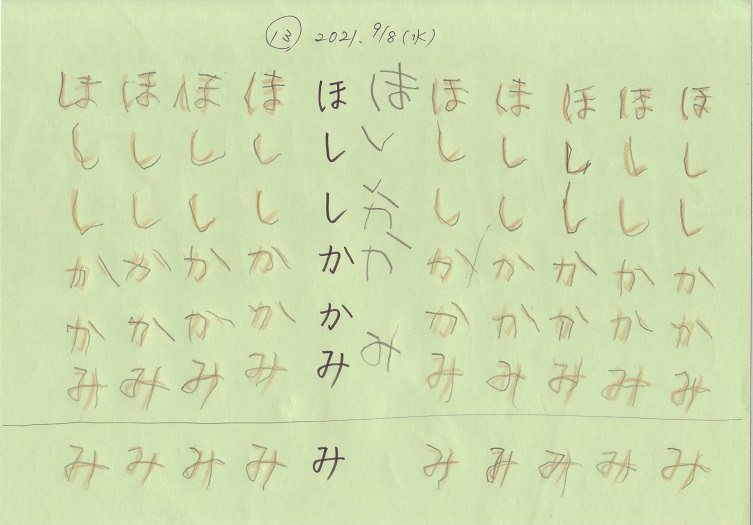 ⑬ 2021.9/8(水)
ほししかかみみ
ほししかかみみ
ほししかかみみ
ほししかかみみ
ほししかかみみ
ほししかかみ
ほししかかみみ
ほししかかみみ
ほししかかみみ
ほししかかみみ
ほししかかみみ